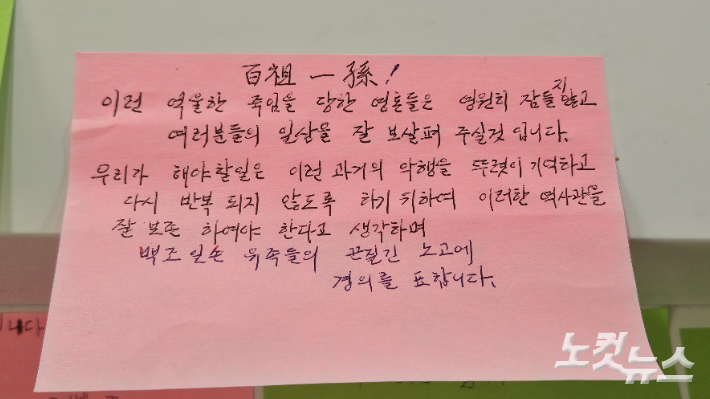 百祖一孫!
이런 억울한 죽임을 당한 영혼들은 영원히 잠들지 않고
여러분들의 일상을 잘 보살펴 주실것 입니다.
우리가 해야할일은 이런 과거의 악행을 뚜렷이 기억하고
다시 반복 되지 않도록 하기 위하여 이러한 역사관을
잘 보존 하여야 한다고 생각하며
백조일손 유족들의 끈질긴 노고에
경의를 표합니다.
니다
노컷뉴스